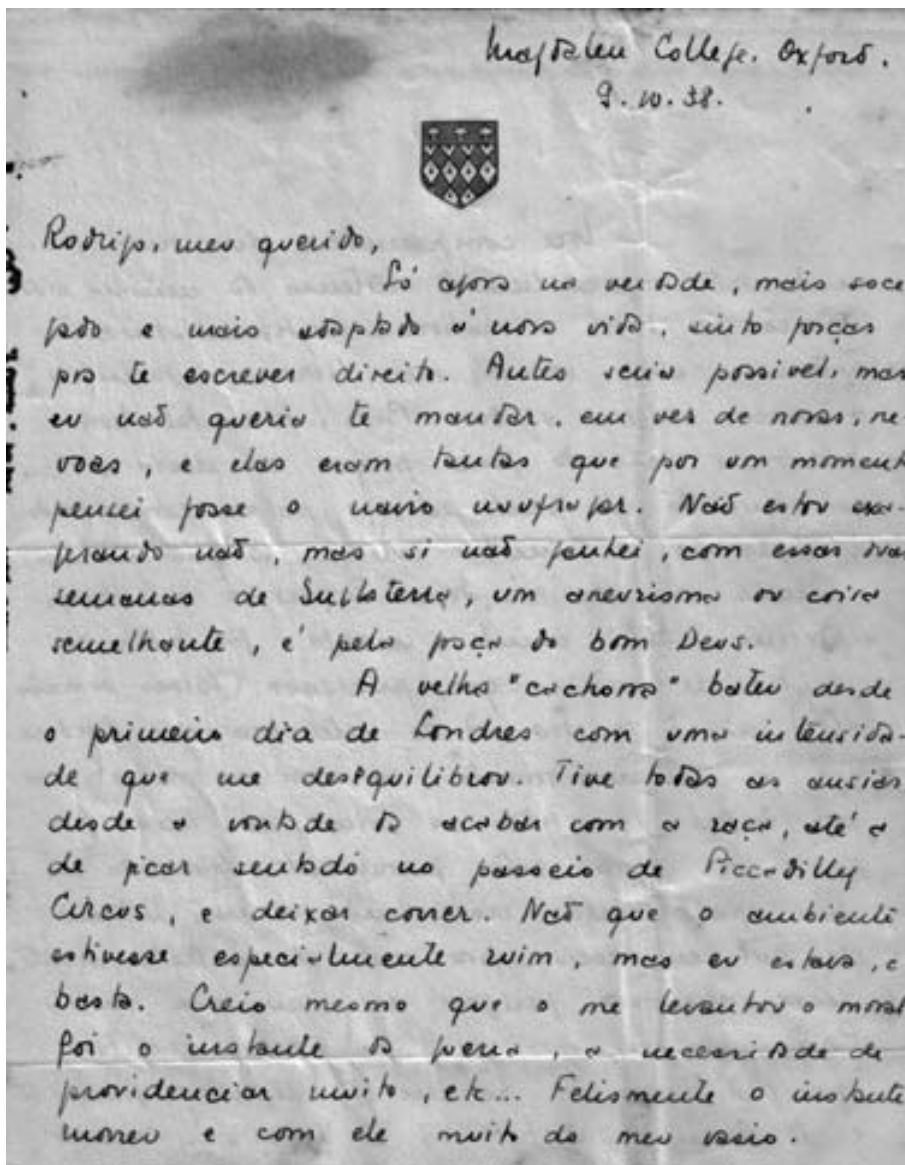 Magdalen College. Oxford.
9.10.38.
Rodrigo, meu querido,
Só agora na verdade, mais soce
gado e mais adaptado á nova vida, sinto forças
pra te escrever direito. Antes seria possivel, mas
eu não queria te mandar, em ves de novas, ne-
voas, e elas eram tantas que por um moment
pensei fosse o navio naufragar. Não estou exa-
gerando não, mas si não ganhei, com essas duas
semanas de Inglaterra, um aneurisma ou coisa
semelhante, é pela graça do bom Deus.
A velha "cachorra" bateu desde
o primeiro dia de Londres com uma intensida-
de que me desequilibrou. Tive todas as ansias
desde a vontade de acabar com a raça, até a
de ficar sentado no passeio de Piccadilly
Circus, e deixar correr. Não que o ambiente
estivesse especialmente ruim, mas eu estava, e
basta. Creio mesmo que o me levantou o moral
foi o instante da guerra, a necessidade de
providenciar muito, etc... Felismente o instante
morreu e com ele muito do meu vasio.